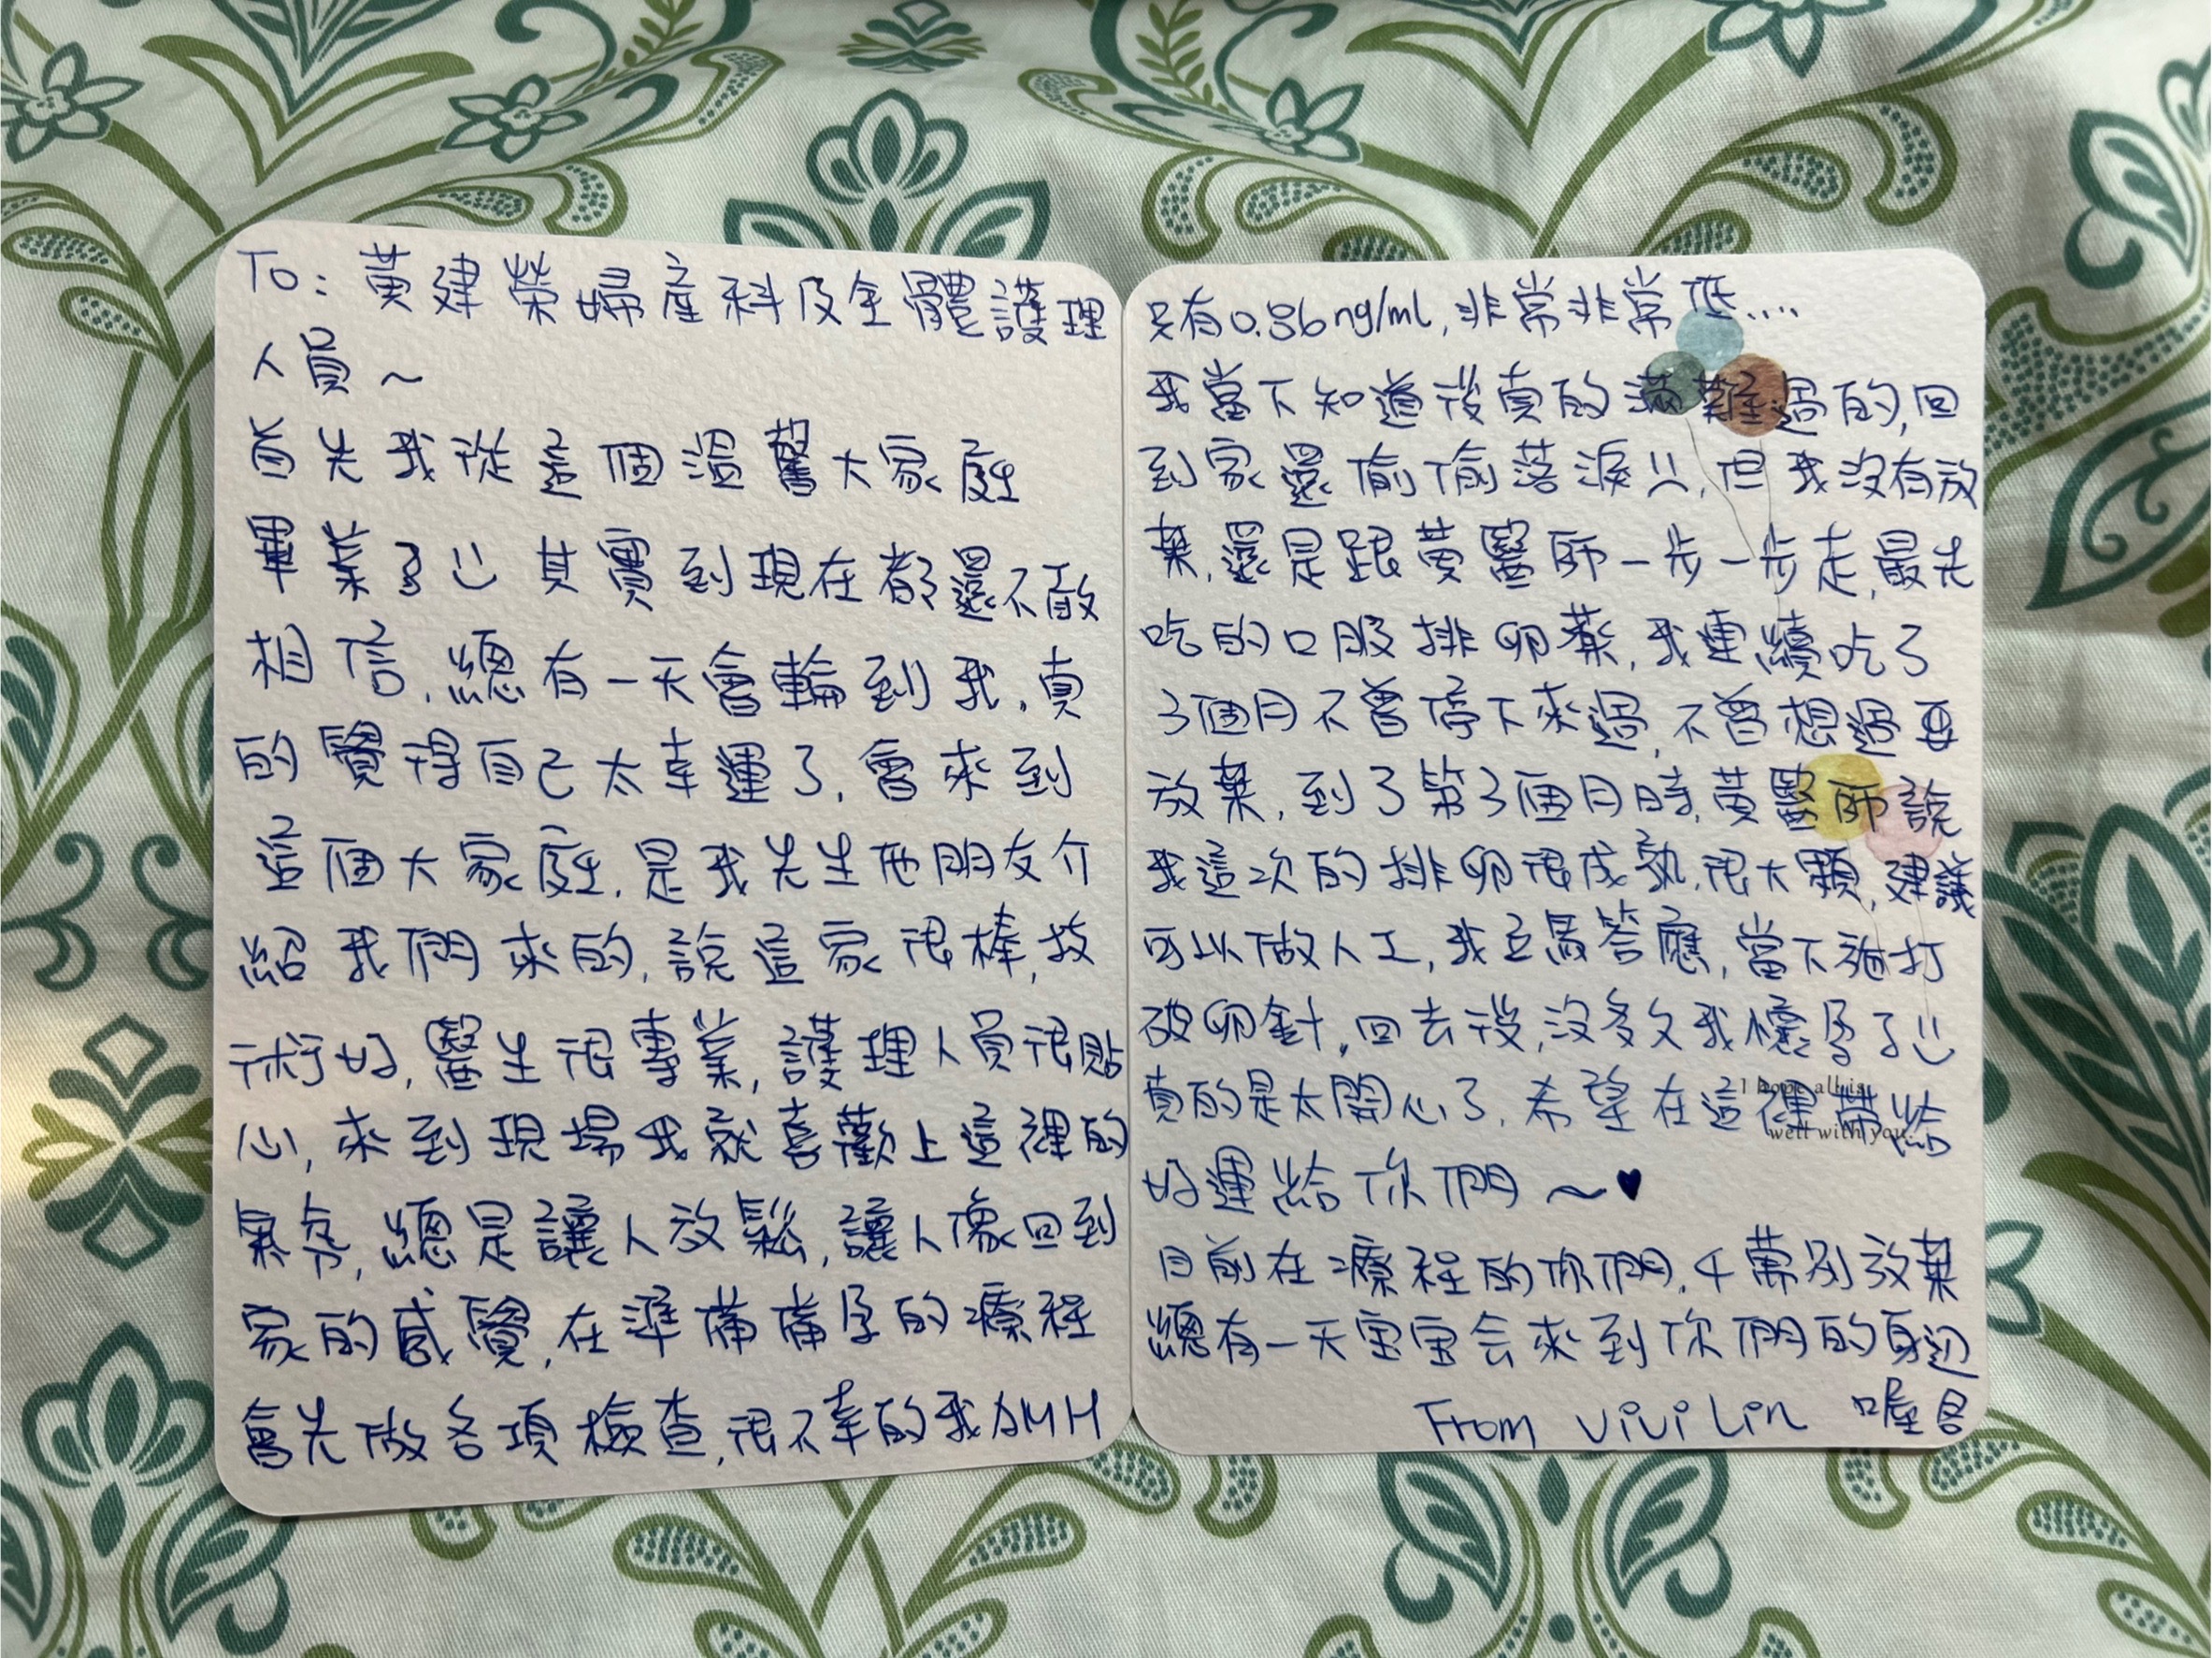 To: 黃建榮婦產科及全體護理
人員~
首先我從這個溫馨大家庭
畢業了 其實到現在都還不敢
相信,總有一天會輪到我,真
的覺得自己太幸運了,會來到
這個大家庭,是我先生他朋友介
紹我們來的,說這家很棒,技
術好,醫生很專業,護理人員很貼
心,來到現場我就喜歡上這裡的
氣氛,總是讓人放鬆,讓人像回到
家的感覺,在準備備孕的療程
會先做各項檢查,很不幸的我AMH
只有0.86ng/ml,非常非常低....
我當下知道後真的滿難過的,回
到家還偷偷落淚,但我沒有放
棄,還是跟黃醫師一步一步走,最先
吃的口服排卵藥,我連續吃了
3個月不曾停下來過,不曾想過要
放棄,到了第3個月時,黃醫師說
我這次的排卵很成熟,很大顆,建議
可以做人工,我立馬答應,當下施打
破卵針,回去後,沒多久我懷孕了
真的是太開心了,希望在這裡帶給
I hope all is
well with you.
好運給你們~♥
目前在療程的你們,千萬別放棄
總有一天宝宝会來到你們的身边
From ViVi Lin 喔